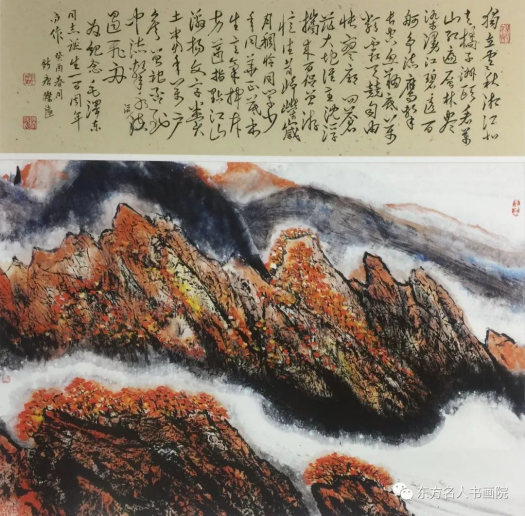 独立寒秋湘江北
去橘子洲头看万
山红遍层林尽
染漫江碧透百
舸争流鹰击
长空鱼翔浅底万
类霜天竞自由
怅寥廓问苍
茫大地谁主沉浮
携来百侣曾游
忆往昔峥嵘岁
月稠恰同学少
年风华正茂书
生意气挥斥
方遒指点江山
激扬文字粪
土当年万户
侯曾记否到
中流击水浪
遏飞舟
为纪念毛泽东
同志诞生一百周年
而作 癸酉春月
东方名人书画院